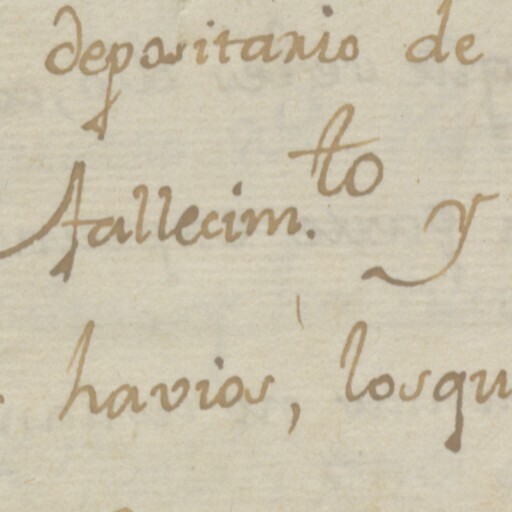 depositario de
fallecim.to y
havios, losqu